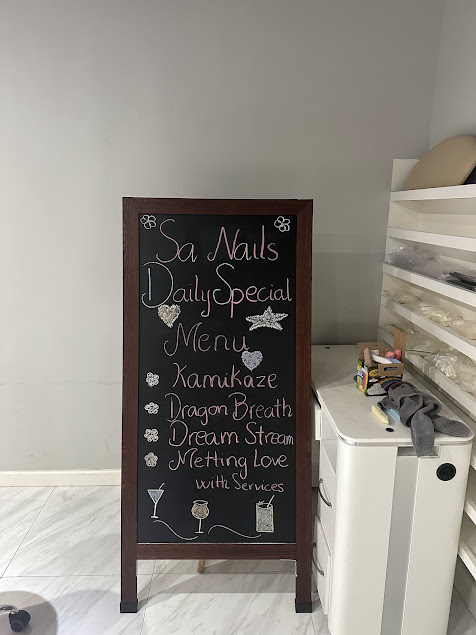 Sa Nails
Daily Special
Menu
Kamikaze
Dragon Breath
Dream Stream
Metting Love
with Services